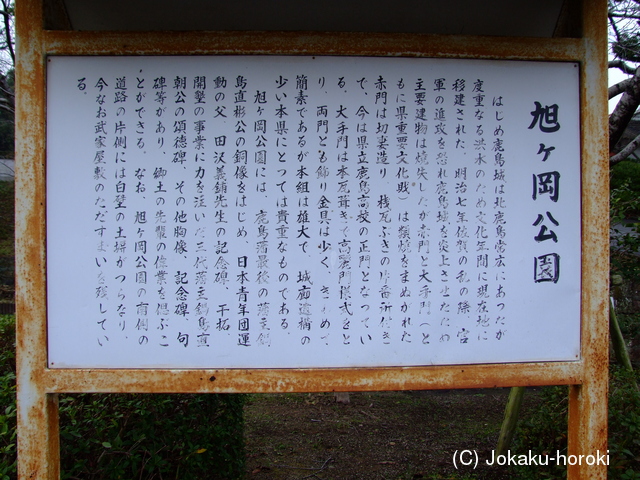 旭ヶ岡公園
はじめ鹿島城は北鹿島常広にあったが
度重なる洪水のため文化年間に現在地に
移建された。明治七年佐賀の乱の際、官
軍の進攻を恐れ鹿島城を炎上させたため
主要建物は焼失したが赤門と大手門(と
もに県重要文化財)は類焼をまぬがれた
赤門は切妻造り、桟瓦ぶきの片番所付き
で、今は県立鹿島高校の正門となってい
る。大手門は本瓦葺きで高麗門様式をと
り、両門とも飾り金具は少く、きわめて
簡素であるが木組は雄大で、城廓遺構の
少い本県にとっては貴重なものである。
旭ヶ岡公園には、鹿島藩最後の藩主鍋
島直彬公の銅像をはじめ、日本青年団運
動の父、田沢義鋪先生の記念碑、干拓
開墾の事業に力を注いだ三代藩主鍋島直
朝公の頌徳碑、その他胸像、記念碑、句
碑等があり、郷土の先輩の偉業を偲ぶこ
とができる。なお、旭ヶ岡公園の南側の
道路の片側には白壁の土塀がつらなり、
今なお武家屋敷のたたずまいを残してい
る
(C) Jokaku-horoki